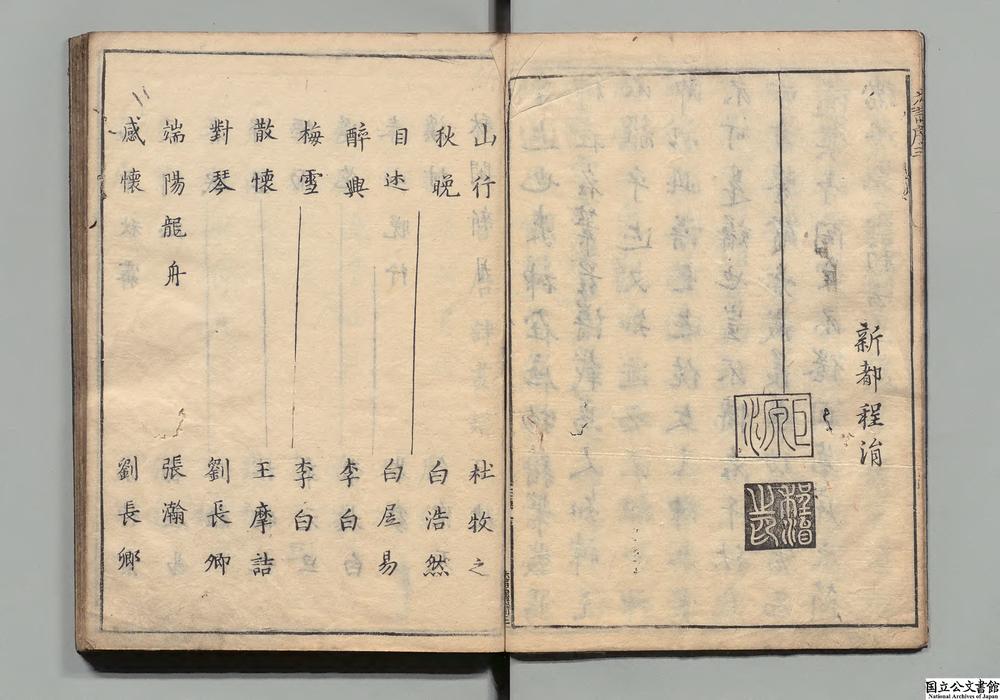 新都程涓
巨源
程涓之印
山行 杜牧之
秋晚 白浩然
自述 白居易
醉興 李白
梅雪 李白
散懷 王摩詰
對琴 劉長卿
端陽龍舟 張瀚
感懷 劉長卿
国立公文書館
National Archives of Japan